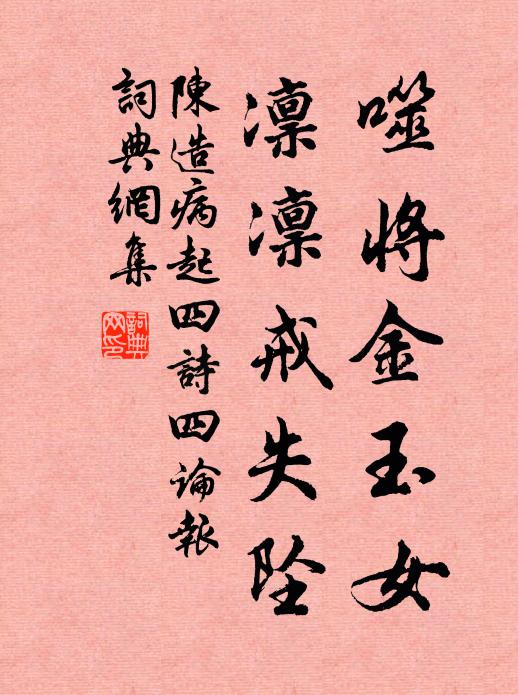 噬將金玉女
凛凛戒失坠
陳造病起四詩四論報
詞典網集
詞典網印